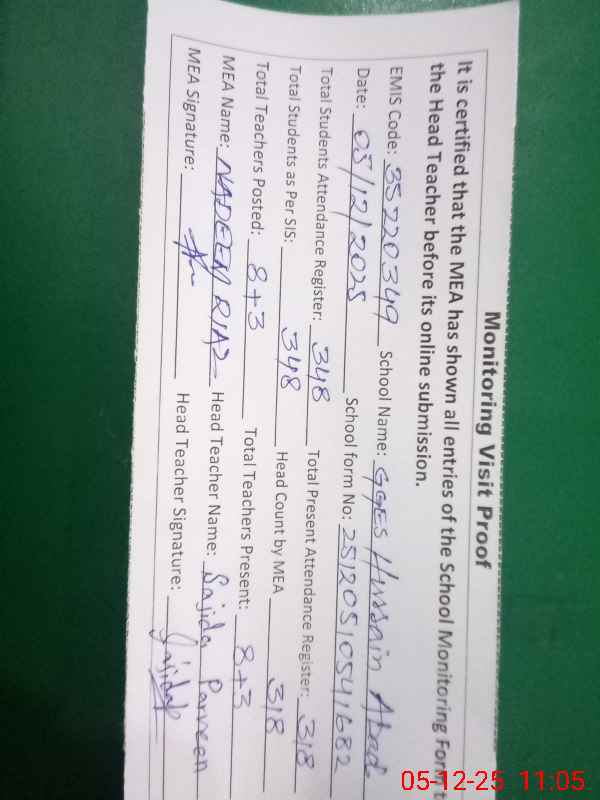 Monitoring Visit Proof
It is certified that the MEA has shown all entries of the School Monitoring Form t
the Head Teacher before its online submission.
EMIS Code: 35220349 School Name: GGES Hussain Abad
Date: 05/12/2025 School form No: 25120510541682
Total Students Attendance Register: 348 Total Present Attendance Register: 318
Total Students as Per SIS: 348 Head Count by MEA 318
Total Teachers Posted: 8+3 Total Teachers Present: 8+3
MEA Name: NADEEM RIAZ Head Teacher Name: Sajida Parveen
MEA Signature: Head Teacher Signature: Sajida
05-12-25 11:05